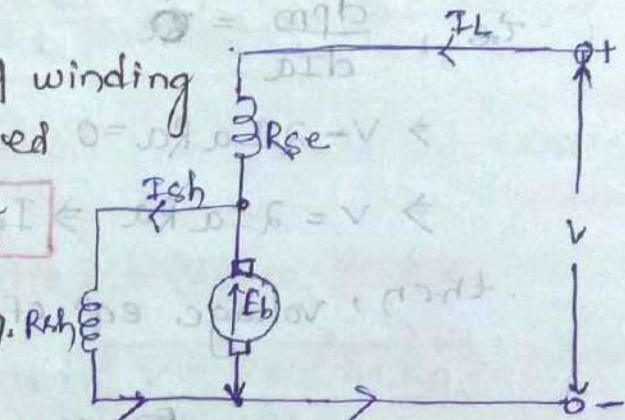 IL
+
winding
ed
Rse
Ish
V
Eb
Rsh
-